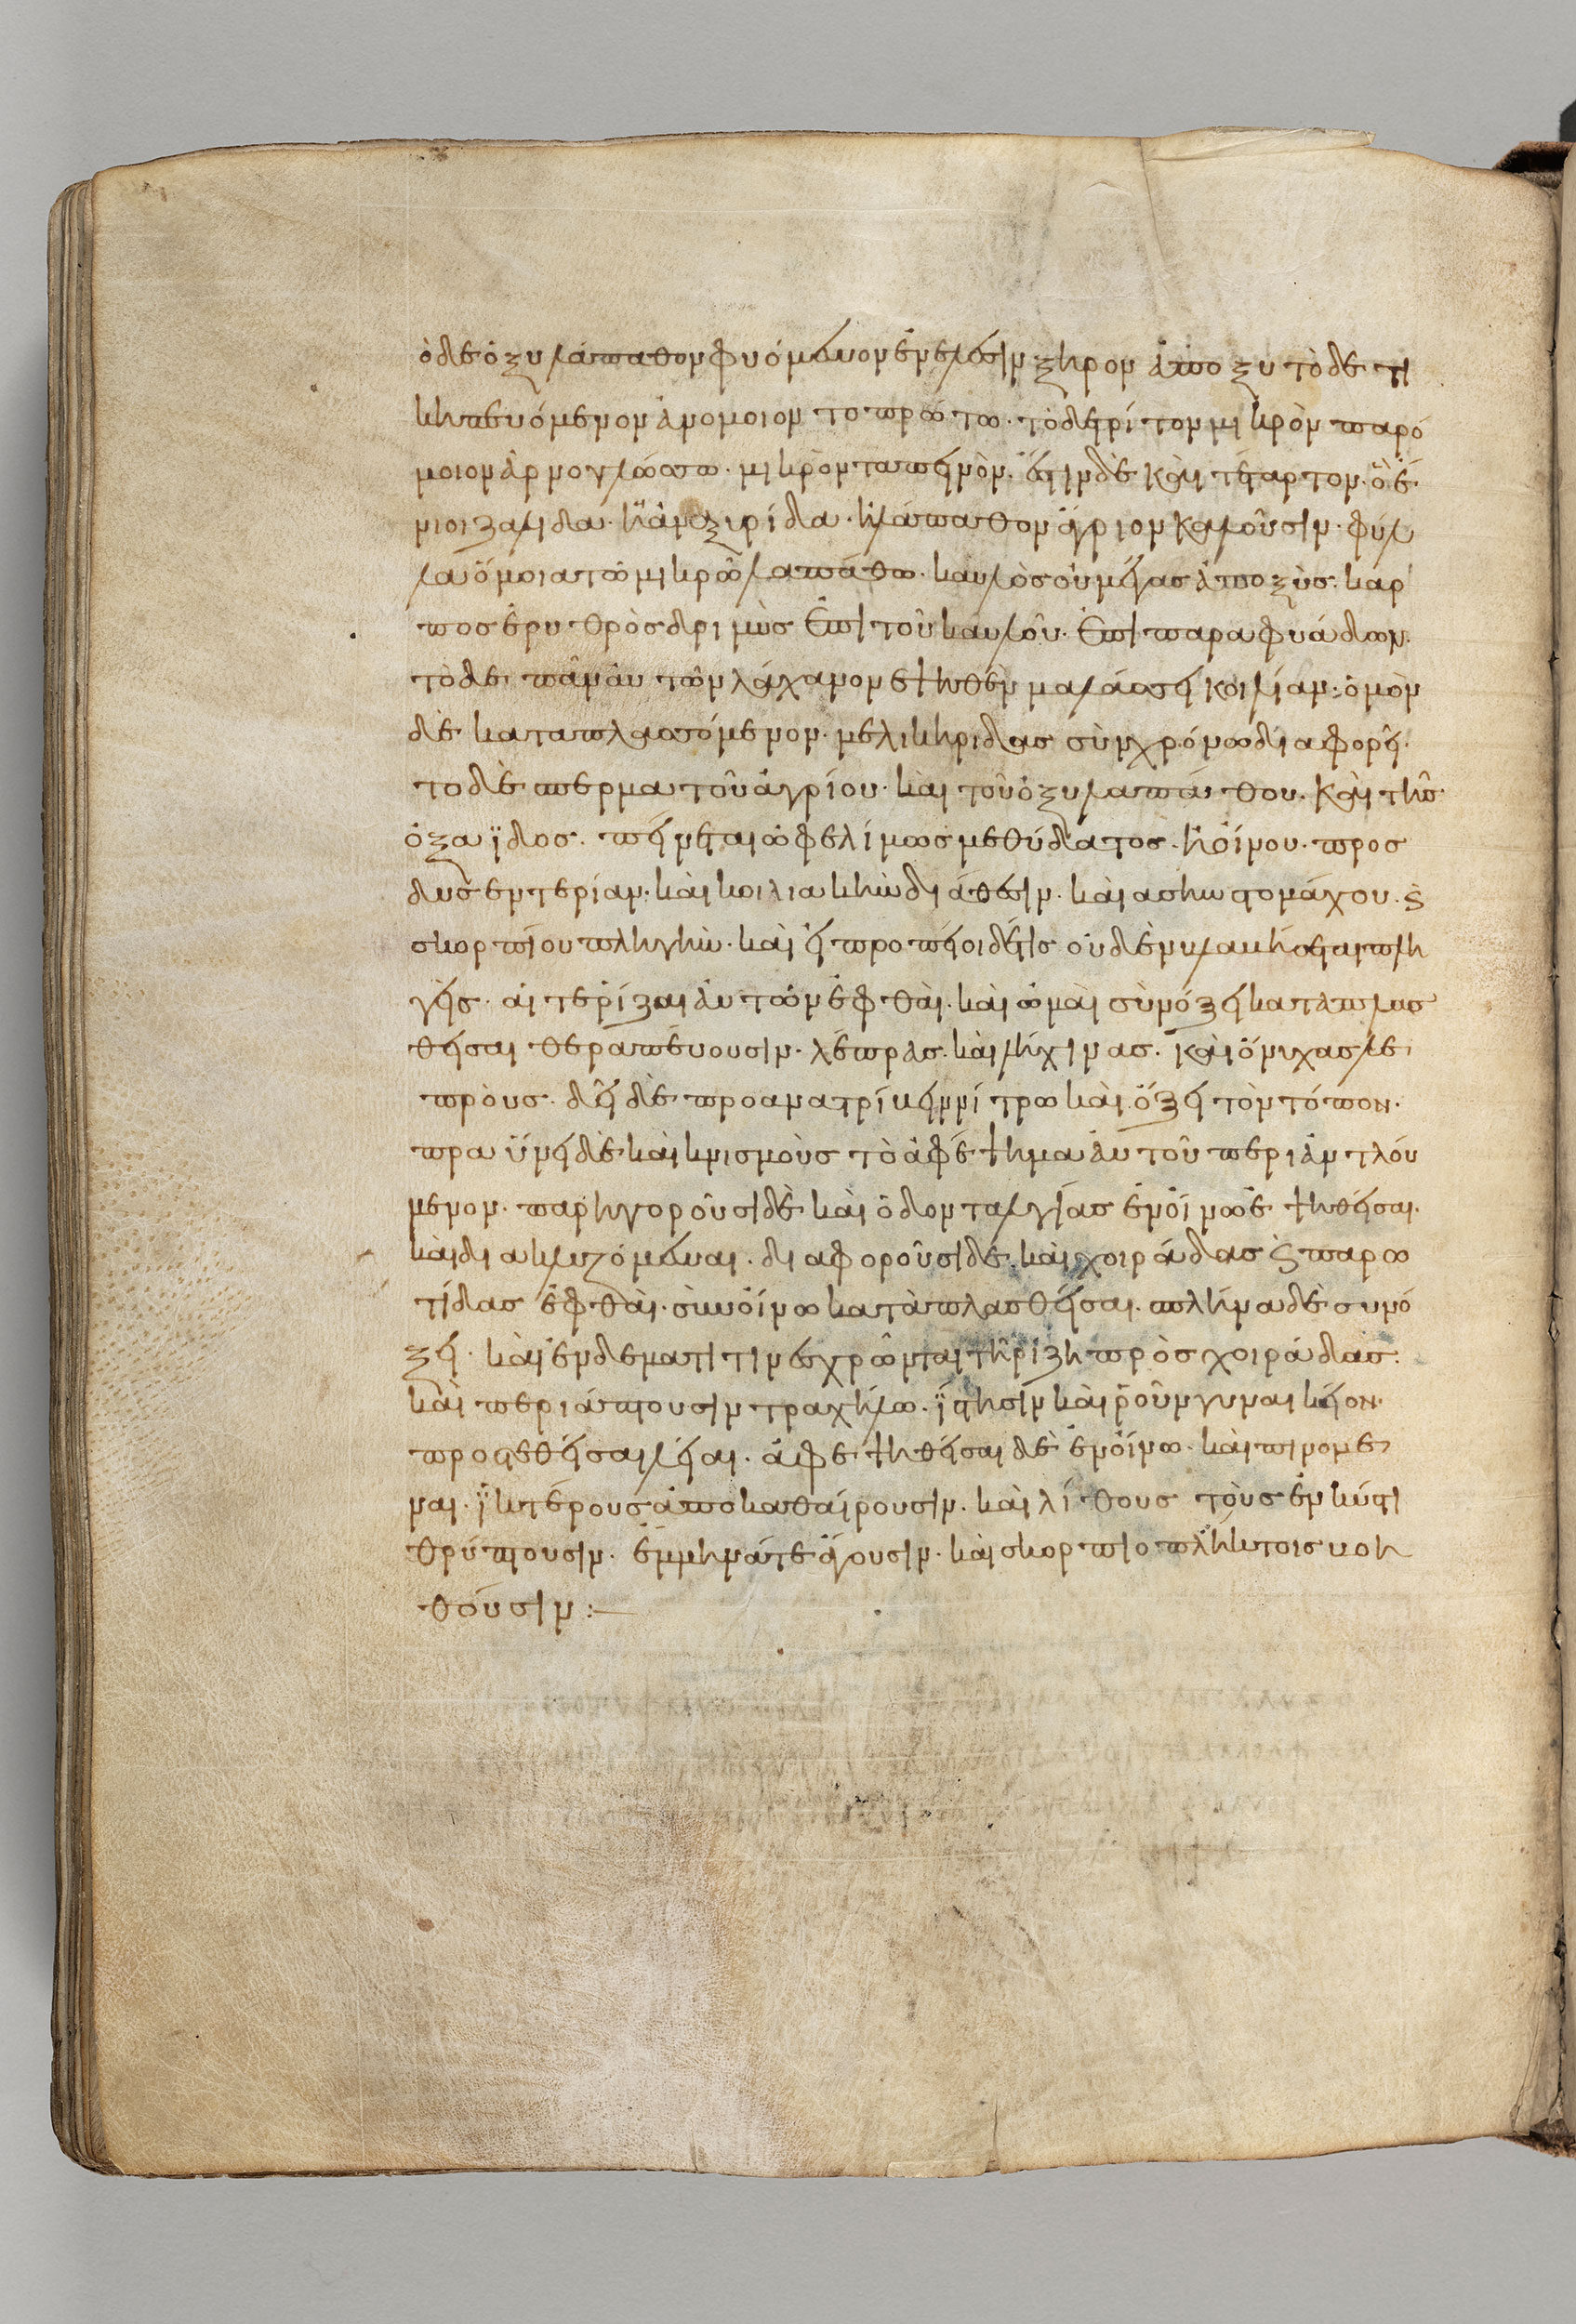 ὁ δὲ ὀξυλάπαθον φυόμενον ἐν ἕλεσιν ξηρον ἀποξυ τὸ δέ τι
κηπευόμενον ἀνομοιον το πρώτω. τὸ δε τρίτον μικρὸν παρό
μοιον ἀρνογλώσσω. μικρὸν ταπεινὸν. ἔστιν δὲ καὶ τέταρτον. ὃ ἔ
νιοι ὀξαλίδα. ἢ ἀναξυρίδα. ἢ λάπαθον ἄγριον καλοῦσιν. φύλ
λα ὅμοια τῶ μικρῶ λαπάθω. καυλὸς οὐ μέγας ἀποξὺς. καρ
πος ἐρυθρὸς δριμὺς ἐπὶ τοῦ καυλοῦ. ἐπὶ παραφυάδων.
τὸ δε πᾶν αὐτῶν λάχανον ἑψηθὲν μαλάσσει κοιλίαν: ὁμὸν
δὲ καταπλασσόμενον. μελικηρίδας σὺν χρόνω διαφορεῖ.
το δὲ σπερμα τοῦ ἀγρίου. καὶ τοῦ ὀξυλαπάθου. καὶ τῆς
ὀξαΐδος. πείνεται ὠφελίμως μεθ ὕδατος. ἢ οἴνου. προς
δυσεντερίαν. καὶ κοιλιακὴν διάθεσιν. καὶ ασην στομάχου. ς
σκορπίου πληγὴν. καὶ εἰ προπείοι δέ τις οὐδὲν λακήσεται πλη
γεὶς. αἱ τε ῥίζαι αὐτῶν ἑφθαὶ. καὶ ὠμαὶ σὺν ὄξει καταπλασ
θεῖσαι θεραπεύουσιν. λέπρας. καὶ λιχῖνας. καὶ ὄνυχας λε
πρὸυς. δεῖ δὲ προαματρίκειν νίτρω καὶ ὄξει τὸν τόπον.
πραΰνει δὲ καὶ κνισμοὺς τὸ ἀφέψημα αὐτοῦ περιαντλόυ
μενον. παρηγοροῦσι δὲ καὶ ὀδονταλγίας ἐν οἴνω ἑψηθεῖσαι.
καὶ διακλυζόμεναι. διαφοροῦσι δέ. καὶ χοιράδας ς παρω
τίδας ἑφθαὶ. σὺν οἴνω κατὰπλασθεῖσαι. πλήνα δὲ συν ὄ
ξει. καὶ ἐν δεματι τινες χρῶνται τῆ ρίζη πρὸς χοιράδας:
καὶ περιάπτουσιν τραχήλω. ἵστησιν καὶ ῥοῦν γυναικεῖον.
προστεθεῖσαι λεῖαι. ἀφεψηθεῖσαι δὲ ἐν οἴνω. καὶ πινομε
ναι. ἰκτέρους ἀποκαθαίρουσιν. καὶ λίθους τοὺς ἐν κύστι
θρύπτουσιν. ἔμμηνά τε ἄγουσιν. καὶ σκορπιοπλήκτοις βοη
θοῦσιν :—